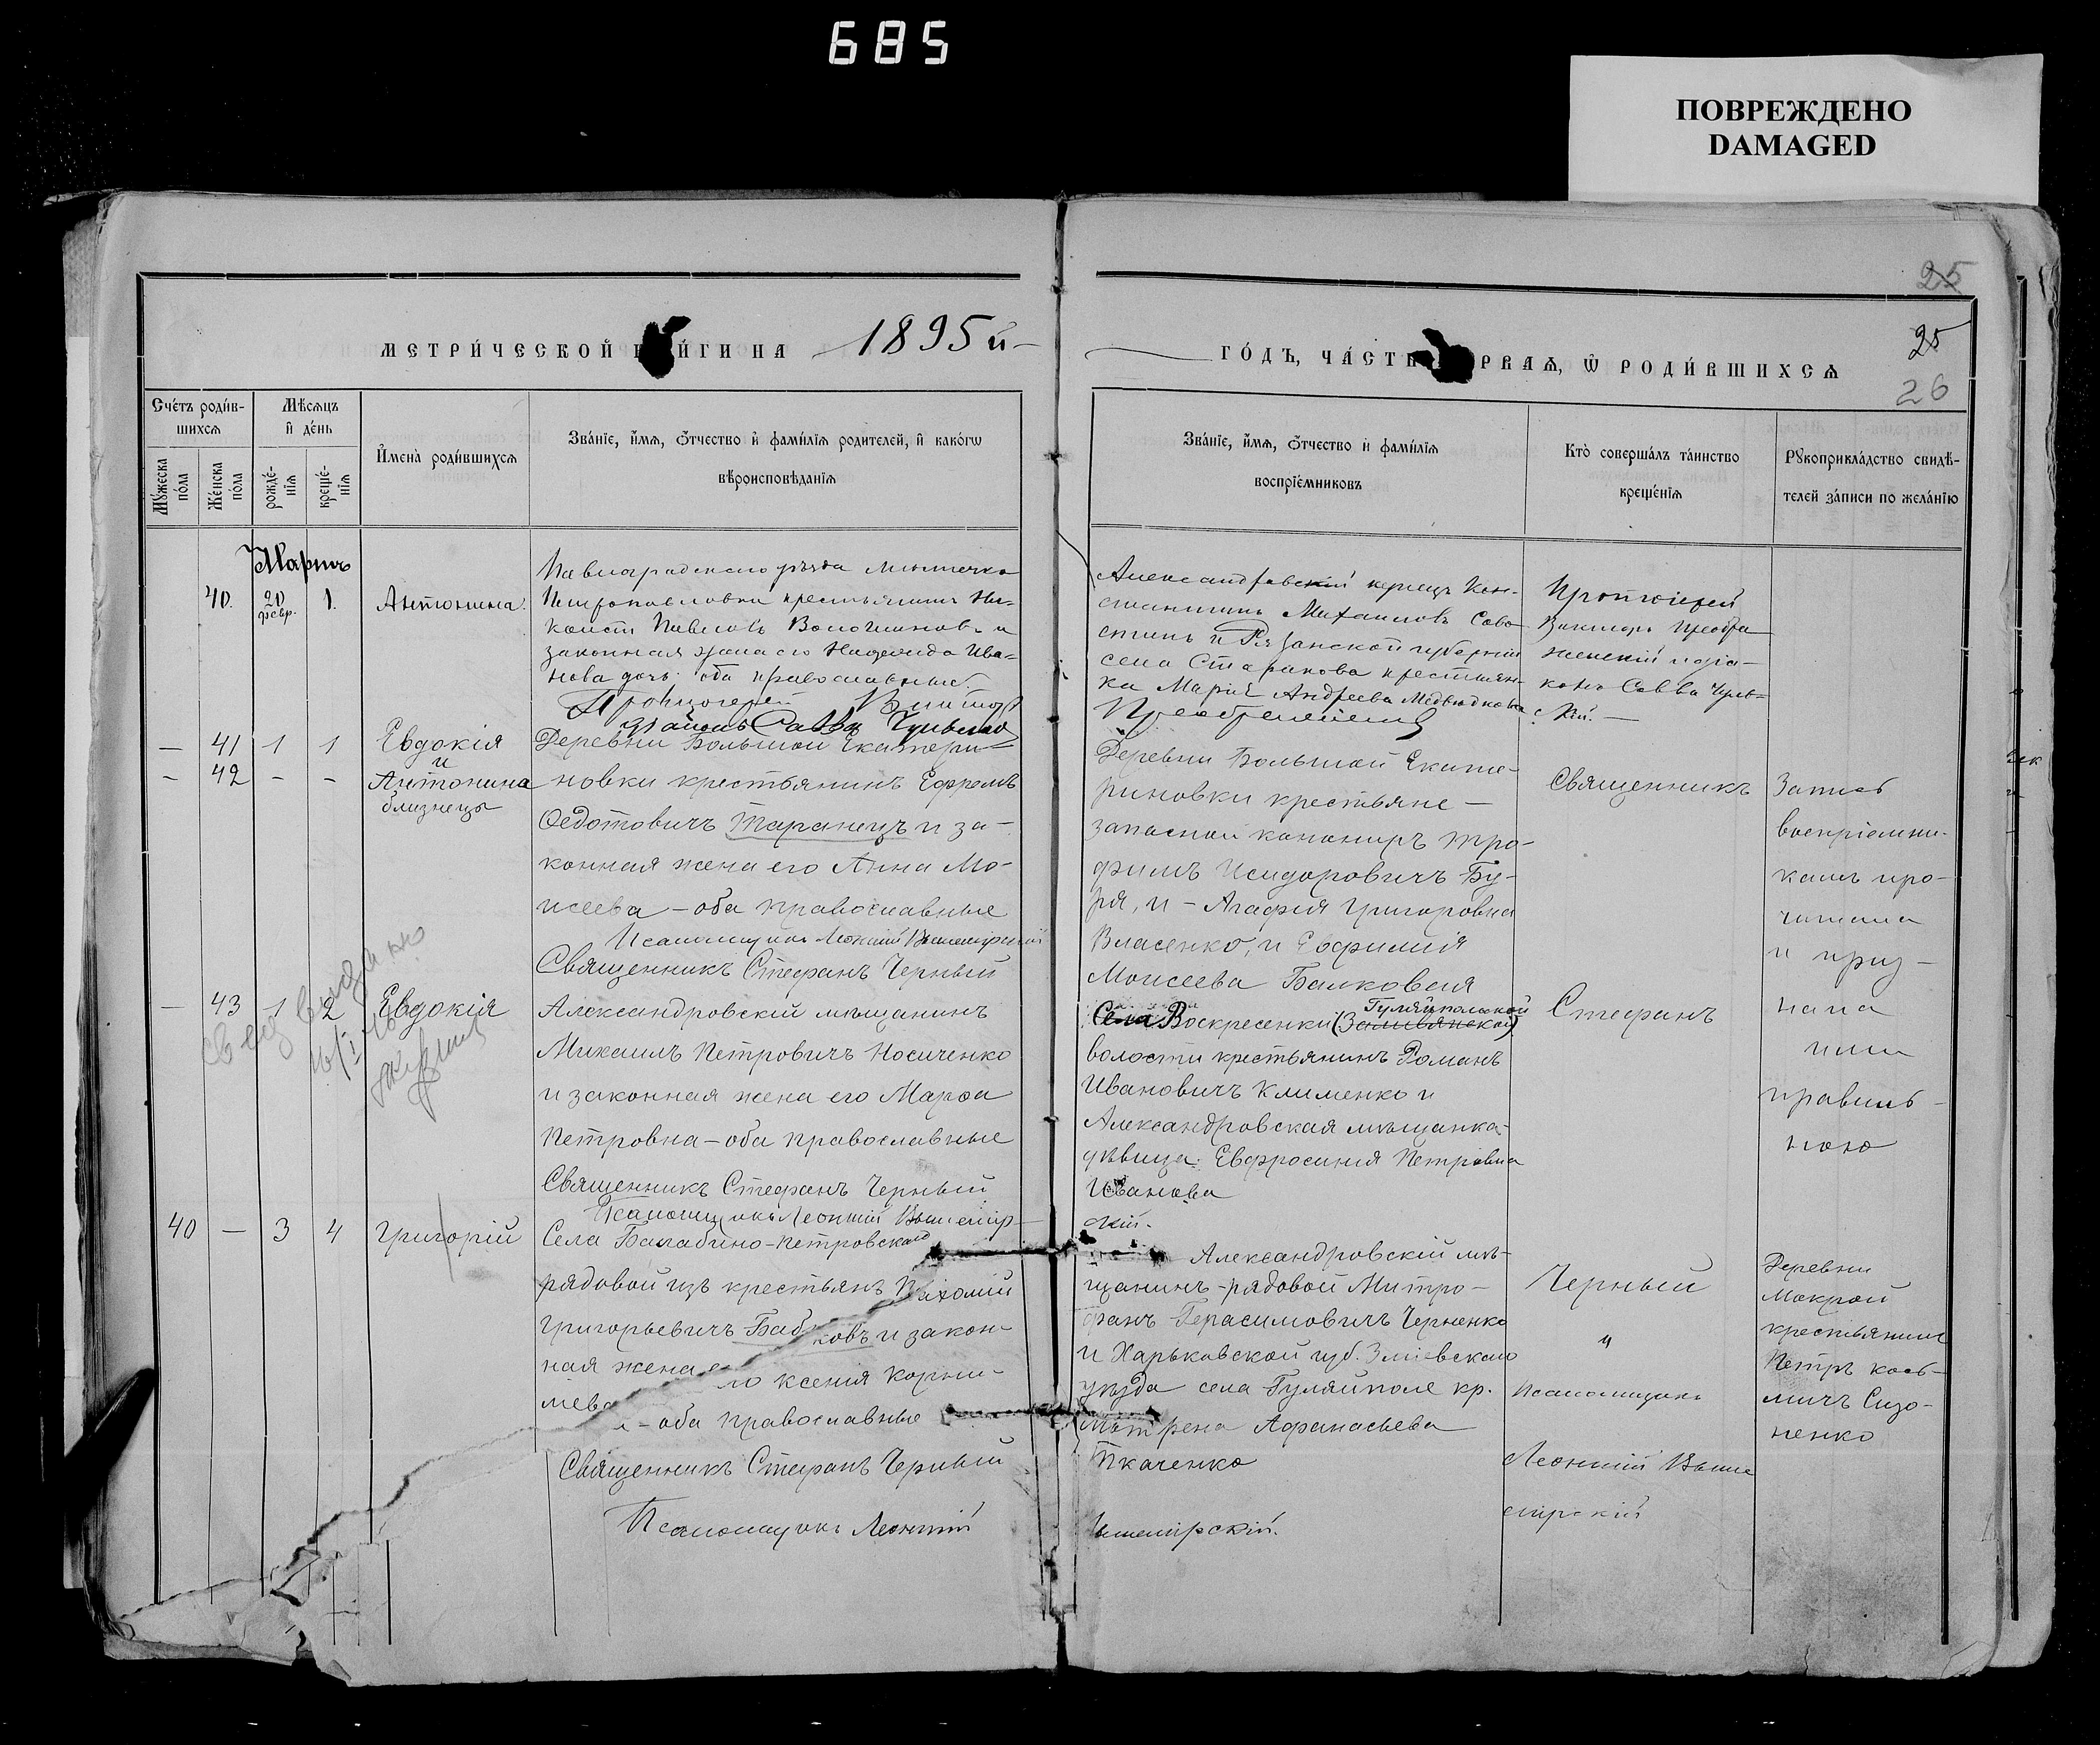 685
ПОВРЕЖДЕНО
DAMAGED
25
МЕТРИ́ЧЕСКОЙ ЙГИ НА 1895 й
ГО́ДЪ, ЧА́СТЬ РВАѦ, Ѿ РОДИ́ВШИХСѦ
25
26
Сче́тъ роди́в-
шихсѧ
Мѣсѧцъ
и҆ де́нь
Му́жеска
по́ла
Же́нска
по́ла
рожде́-
нїѧ
креще́-
нїѧ
И҆мена̀ роди́вшихсѧ
Зва́нїе, и҆́мѧ, ѻ҆́тчество и҆ фами́лїѧ родителей, и҆ како́гѡ
вѣроисповѣ́данїѧ
Зва́нїе, и҆́мѧ, ѻ҆́тчество и҆ фами́лїѧ
воспрїе́мниковъ
Кто̀ соверша́лъ та́инство
креще́нїѧ
Рꙋкоприкла́дство свидѣ́-
телей за́писи по жела́нїю
Мартъ
40. 20 февр. 1. Антонина.
Павлоградскаго уѣзда мѣстечка
Петропавловки крестьянинъ Ни-
Павловъ и
законная жена его Надежда Ива-
нова дочь. оба православные.
Протоіерей Викторъ
діаконъ Савва
Александровскій купецъ Кон-
стантинъ Михаиловъ Саво
стинъ и Рязанской губерніи
села крестьян-
ка Марія Андреева Медвѣдкова
Преображенскій
Протоіерей
Викторъ Преобра
женскій и діа-
конъ Савва
скій.
— 41 1 1 Евдокія
и
— 42 - - Антонина
близнецы
Деревни Большой Екатери-
новки крестьянинъ Ефремъ
Ѳедотовичъ Таранецъ и за-
конная жена его Анна Мо-
исеева — оба православные
Псаломщикъ Леонтій Вышемірскій
Священникъ Стефанъ Черный
Деревни Большой Екате-
риновки крестьяне —
запасной канониръ Тро-
фимъ Исидоровичъ Бу-
ря, и — Агафія Григоровна
Власенко, и Евфимія
Моисеева
Священникъ
Запись
воспріемни-
камъ про-
читана
и приз-
нана
ими
правиль-
ною
— 43 1 2 Евдокія
Александровскій мѣщанинъ
Михаилъ Петровичъ Носиченко
и законная жена его Марфа
Петровна — оба православные
Священникъ Стефанъ Черный
Псаломщикъ Леонтій Вышемір-
Гуляйпольской
Села Воскресенки
волости крестьянинъ Романъ
Ивановичъ Клименко и
Александровская мѣщанка-
дѣвица. Евфросинія Петровна
Иванова
скій.
Стефанъ
40 — 3 4 Григорій
Села Балабино-Петровскаго
рядовой изъ крестьянъ Пахомій
Григорьевичъ Баб ковъ и закон-
ная жена его Ксенія Корни-
лиева — оба православные
Священникъ Стефанъ Черный
Псаломщикъ Леонтій
Александровскій мѣ-
щанинъ-рядовой Митро-
фанъ Герасимовичъ Черненко
и Харьковской губ. Зміевскаго
уѣзда села Гуляйполе кр.
Матрена Афанасьева
Ткаченко
Вышемірскій.
Черный
и
Псаломщикъ
Леонтій Выше
мірскій
Деревни
Мокрой
крестьянинъ
Петръ Козь-
мичъ Сизо-
ненко